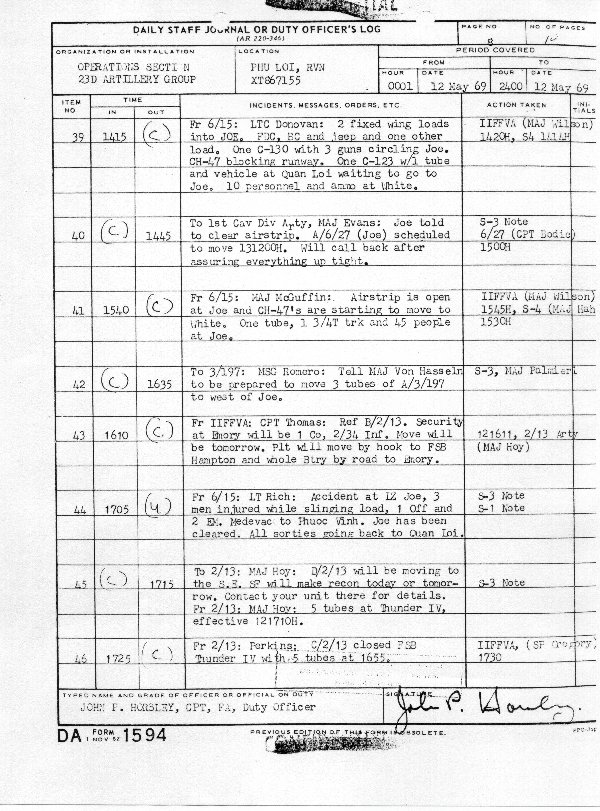 DAILY STAFF JOURNAL OR DUTY OFFICER'S LOG
(AR 220-346)
PAGE NO
NO OF PAGES
ORGANIZATION OR INSTALLATION
OPERATIONS SECTION
23D ARTILLERY GROUP
LOCATION
PHU LOI, RVN
XT867155
PERIOD COVERED
FROM
TO
HOUR DATE HOUR DATE
0001 12 May 69 2400 12 May 69
ITEM NO
TIME
IN OUT
INCIDENTS, MESSAGES, ORDERS, ETC.
ACTION TAKEN
INITIALS
39 1415 (C)
Fr 6/15: LTC Donovan: 2 fixed wing loads
into JOE. FDC, BC and jeep and one other
load. One C-130 with 3 guns circling Joe.
CH-47 blocking runway. One C-123 w/1 tube
and vehicle at Quan Loi waiting to go to
Joe. 10 personnel and ammo at White.
IIFFVA (MAJ Wilson)
1420H, S4 1414H
40 (C) 1445
To 1st Cav Div Arty, MAJ Evans: Joe told
to clear airstrip. A/6/27 (Joe) scheduled
to move 131200H. Will call back after
assuring everything up tight.
S-3 Note
6/27 (CPT Bodie)
1500H
41 1540 (C)
Fr 6/15: MAJ McGuffin: Airstrip is open
at Joe and CH-47's are starting to move to
White. One tube, 1 3/4T trk and 45 people
at Joe.
IIFFVA (MAJ Wilson)
1545H, S-4 (MAJ
1530H
42 (C) 1635
To 3/197: MSG Romero: Tell MAJ Von Hasseln
to be prepared to move 3 tubes of A/3/197
to west of Joe.
S-3, MAJ Palmieri
43 1610 (C)
Fr IIFFVA: CPT Thomas: Ref B/2/13. Security
at Emory will be 1 Co, 2/34 Inf. Move will
be tomorrow. Plt will move by hook to FSB
Hampton and whole Btry by road to Emory.
121611, 2/13 Arty
(MAJ Hoy)
44 1705 (U)
Fr 6/15: LT Rich: Accident at LZ Joe, 3
men injured while slinging load, 1 Off and
2 EM. Medevac to Phuoc Vinh. Joe has been
cleared. All sorties going back to Quan Loi.
S-3 Note
S-1 Note
45 (C) 1715
To 2/13: MAJ Hoy: D/2/13 will be moving to
the S.E. SF will make recon today or tomor-
row. Contact your unit there for details.
Fr 2/13: MAJ Hoy: 5 tubes at Thunder IV,
effective 121710H.
S-3 Note
46 1725 (C)
Fr 2/13: Perkins: C/2/13 closed FSB
Thunder IV with 5 tubes at 1655.
IIFFVA, (SP Gregory)
1730
TYPED NAME AND GRADE OF OFFICER OR OFFICIAL ON DUTY
JOHN P. HORSLEY, CPT, FA, Duty Officer
SIGNATURE
John P. Horsley
DA FORM 1594
1 NOV 62
PREVIOUS EDITION OF THIS FORM IS OBSOLETE.